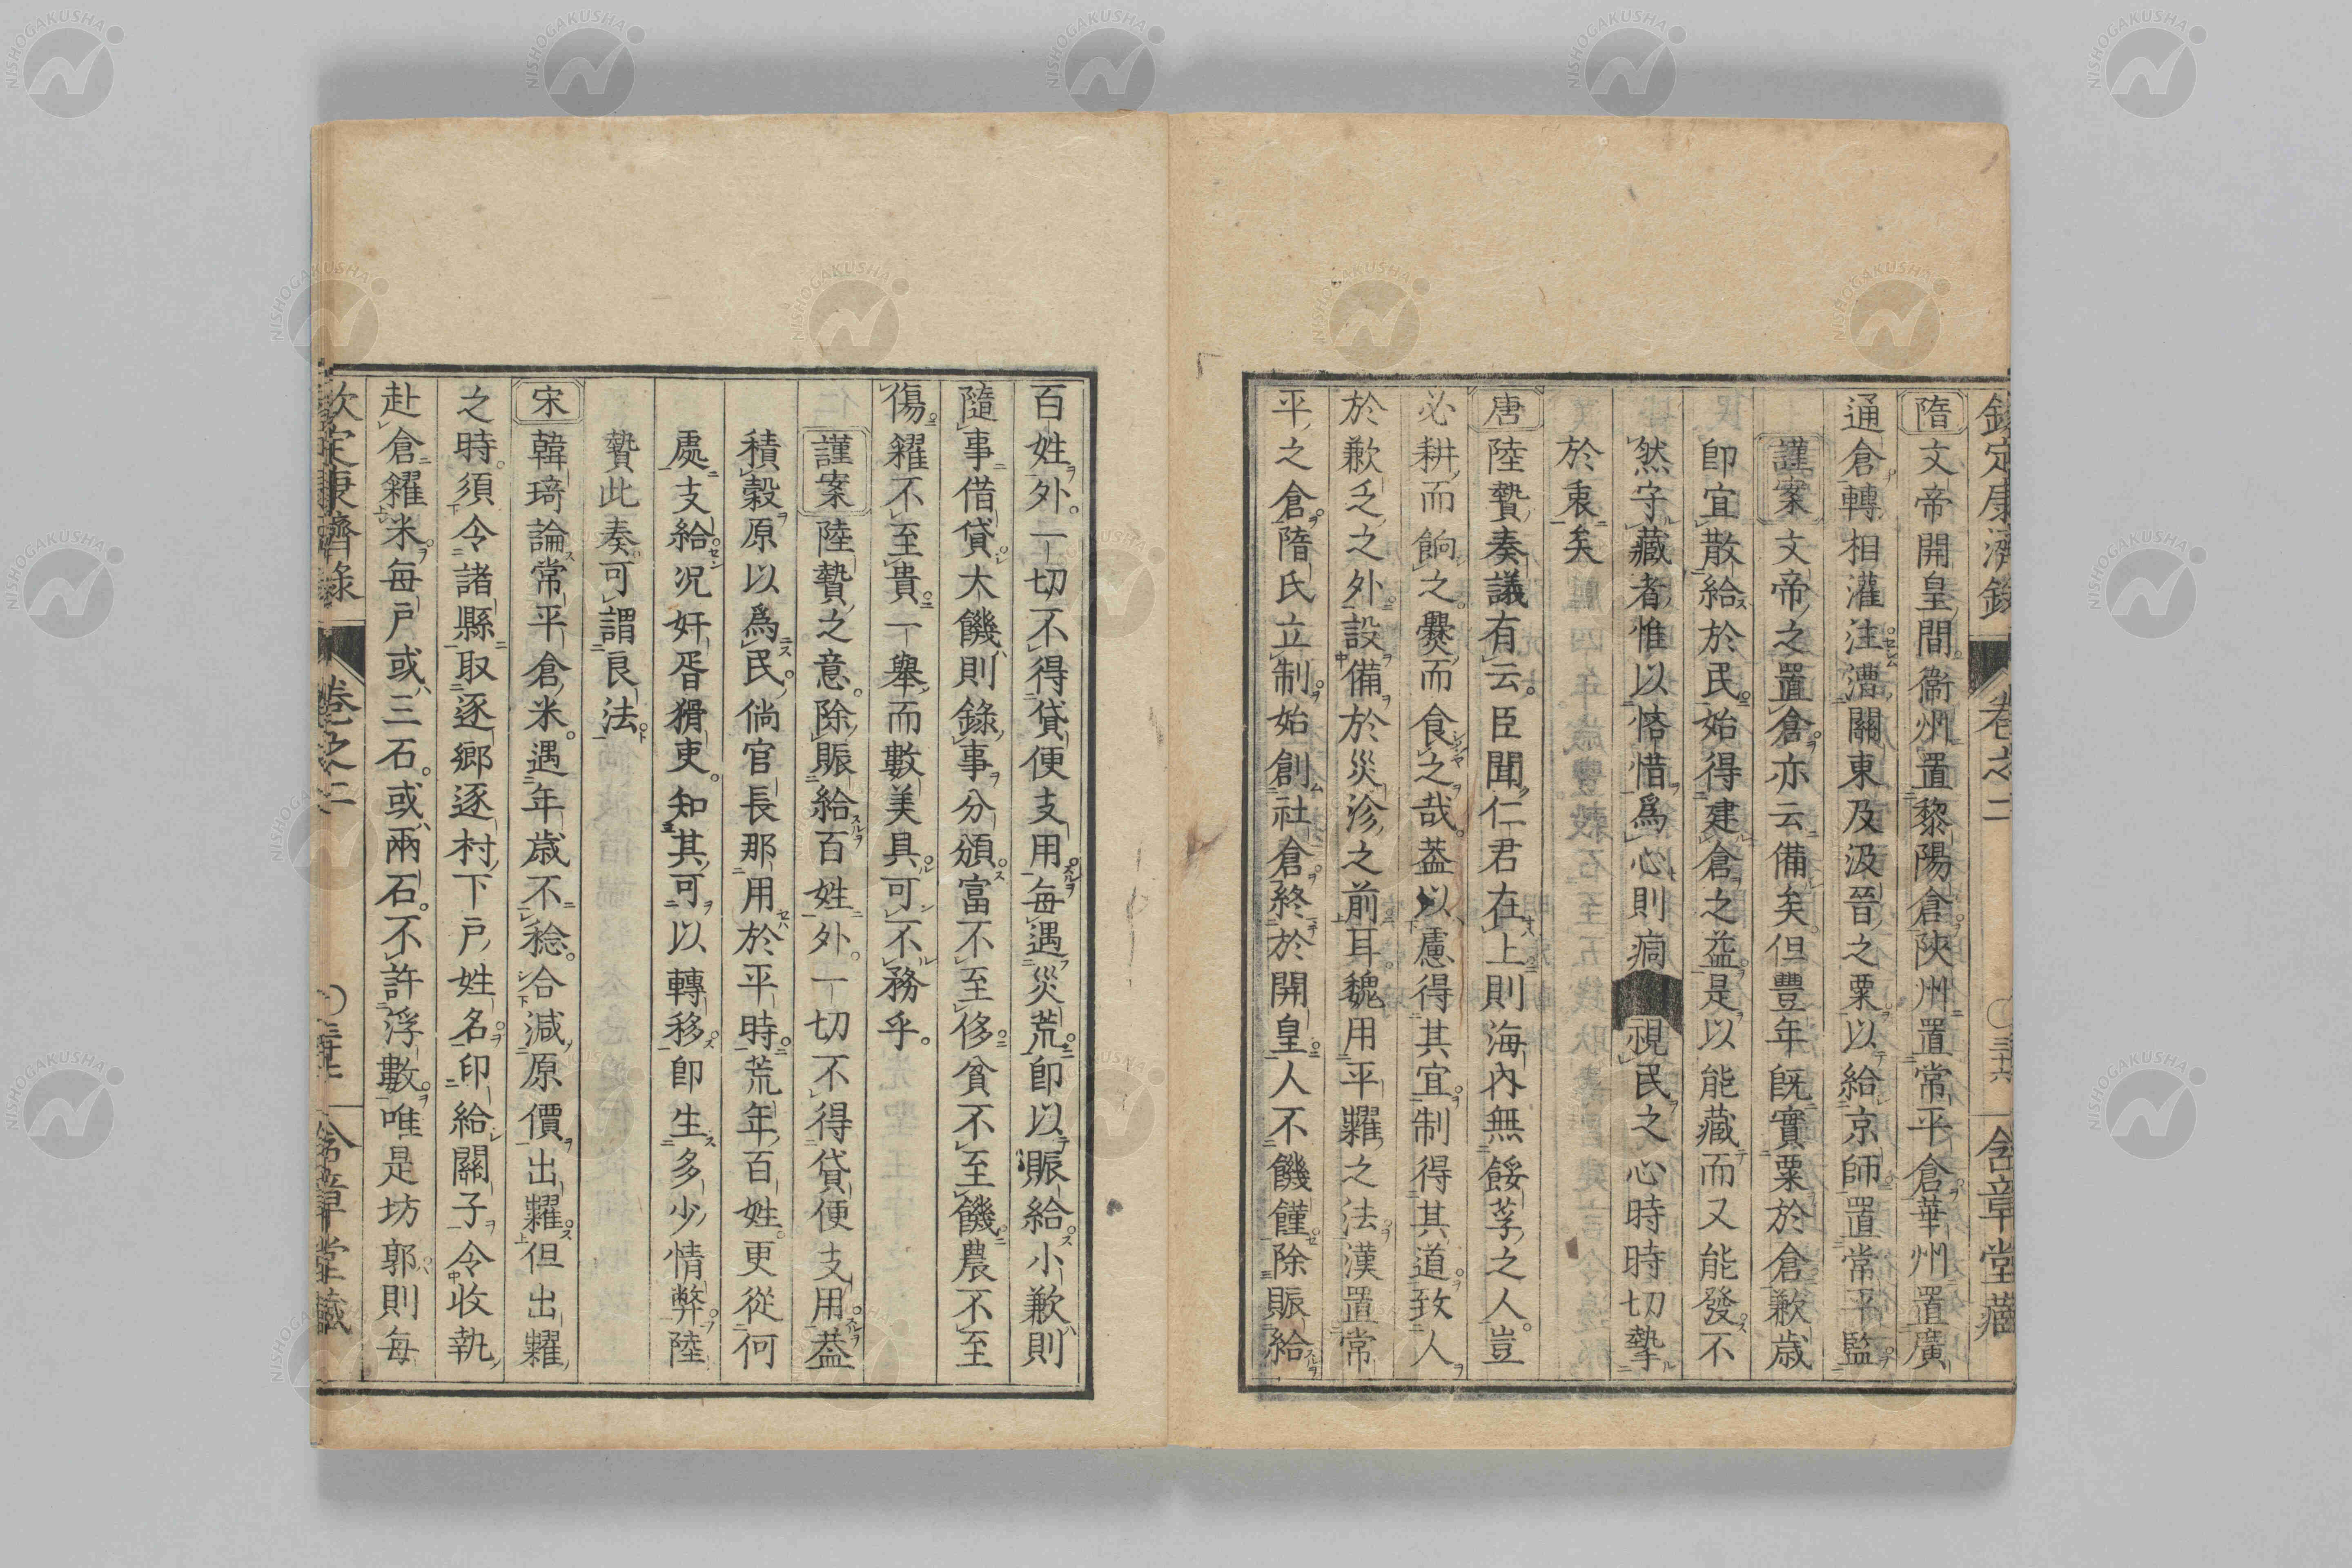 欽定康濟錄 卷之二 ○三十六 含章堂藏
隋 文帝開皇間衞州置黎陽倉陝州置常平倉華州置廣
通倉轉相灌注漕關東及汲晉之粟以給京師置常平監
謹案 文帝之置倉亦云備矣但豐年旣實粟於倉歉歲
卽宜散給於民始得建倉之益是以能藏而又能發不
然守藏者惟以悋惜爲心則痌 視民之心時時切摯
於衷矣
唐 陸贄奏議有云。臣聞仁君在上則海內無餒莩之人。豈
必耕而餉之。爨而食之哉。葢以慮得其宜制得其道致人
於歉乏之外設備於災沴之前耳魏用平糴之法漢置常
平之倉隋氏立制始創社倉終於開皇人不饑饉除賑給
百姓外。一切不得貸便支用每遇災荒卽以賑給小歉則
隨事借貸大饑則錄事分頒富不至侈貧不至饑農不至
傷糴不至貴一舉而數美具可不務乎。
謹案 陸贄之意。除賑給百姓外。一切不得貸便支用葢
積穀原以爲民。倘官長那用於平時荒年百姓更從何
處支給况奸胥猾吏。知其可以轉移卽生多少情弊陸
贄此奏可謂良法。
宋 韓琦論常平倉米。遇年歲不稔。合減原價出糶但出糶
之時。須令諸縣取逐鄉逐村下戶姓名印給關子令收執
赴倉糴米每戶或三石。或兩石。不許浮數唯是坊郭則每
欽定康濟錄 卷之二 ○三十七 含章堂藏
NISHOGAKUSHA